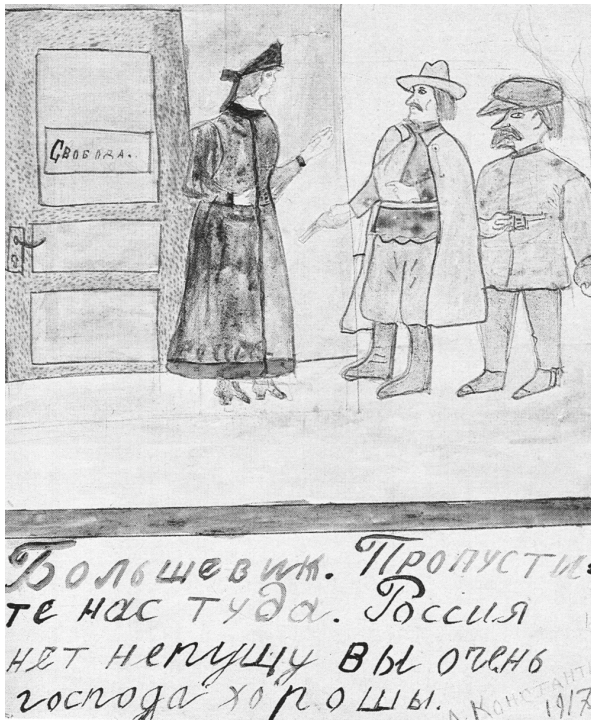 Свобода.
Большевик. Пропусти-
те нас туда. Россия
нет непущу вы очень
господа хорошы.
Л. Константи
1917